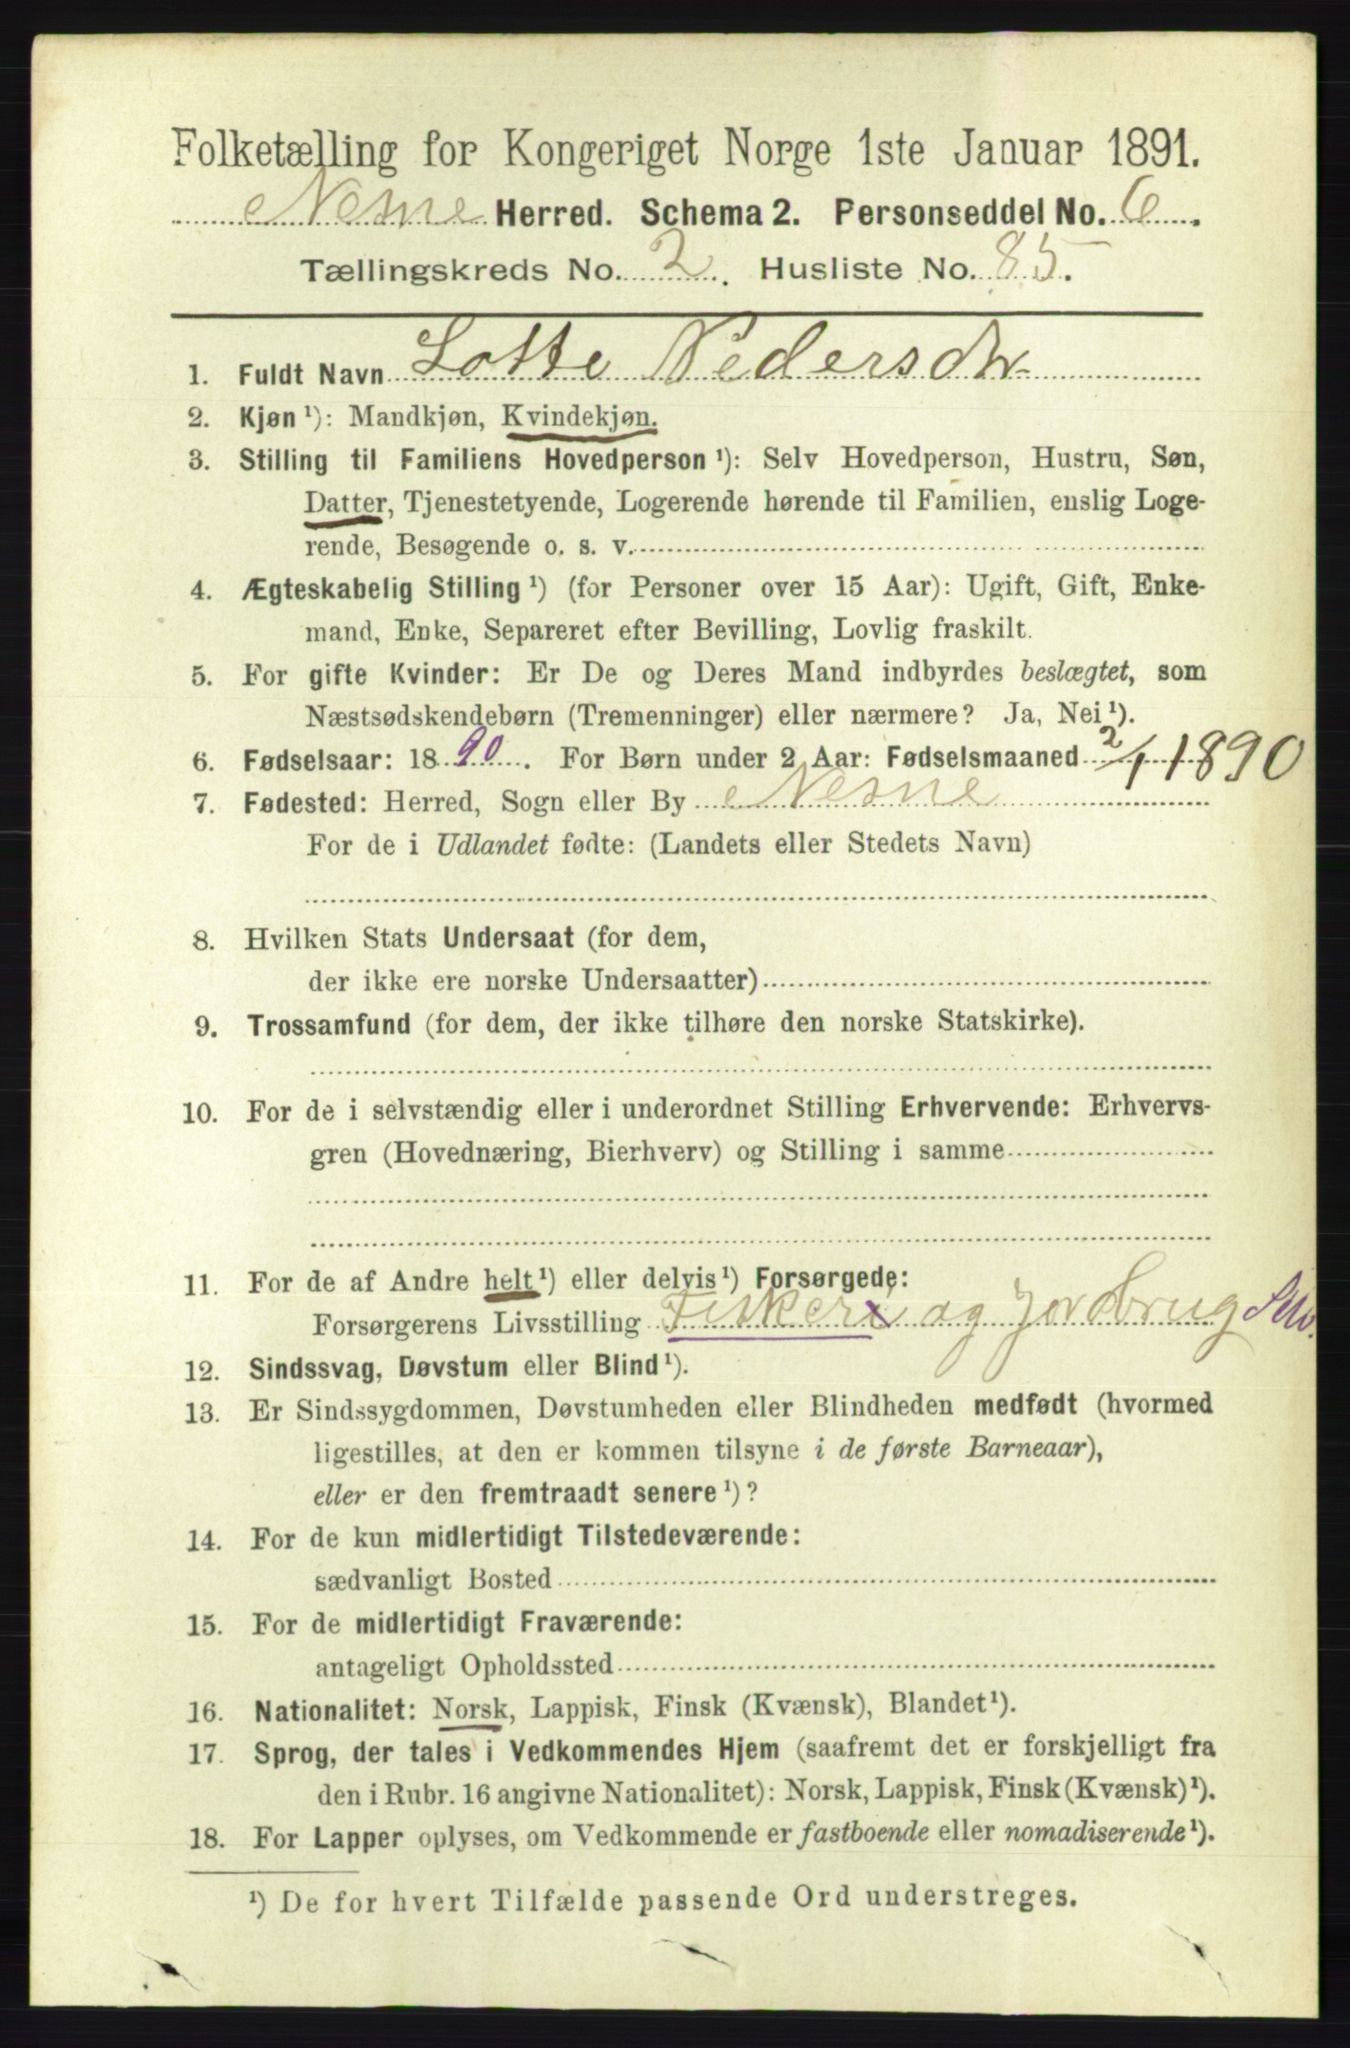 Folketælling for Kongeriget Norge 1ste Januar 1891.
Nesne Herred. Schema 2. Personseddel No. 6.
Tællingskreds No. 2. Husliste No. 85.
1. Fuldt Navn Lotte Pedersdtr
2. Kjøn ¹): Mandkjøn, Kvindekjøn.
3. Stilling til Familiens Hovedperson ¹): Selv Hovedperson, Hustru, Søn,
Datter, Tjenestetyende, Logerende hørende til Familien, enslig Loge-
rende, Besøgende o. s. v.
4. Ægteskabelig Stilling ¹) (for Personer over 15 Aar): Ugift, Gift, Enke-
mand, Enke, Separeret efter Bevilling, Lovlig fraskilt.
5. For gifte Kvinder: Er De og Deres Mand indbyrdes beslægtet, som
Næstsødskendebørn (Tremenninger) eller nærmere? Ja, Nei ¹).
6. Fødselsaar: 1890. For Børn under 2 Aar: Fødselsmaaned 2/1 1890
7. Fødested: Herred, Sogn eller By Nesne
For de i Udlandet fødte: (Landets eller Stedets Navn)
8. Hvilken Stats Undersaat (for dem,
der ikke ere norske Undersaatter)
9. Trossamfund (for dem, der ikke tilhøre den norske Statskirke).
10. For de i selvstændig eller i underordnet Stilling Erhvervende: Erhvervs-
gren (Hovednæring, Bierhverv) og Stilling i samme
11. For de af Andre helt ¹) eller delvis ¹) Forsørgede:
Forsørgerens Livsstilling Fiskeri og Jordbrug Selv.
12. Sindssvag, Døvstum eller Blind ¹).
13. Er Sindssygdommen, Døvstumheden eller Blindheden medfødt (hvormed
ligestilles, at den er kommen tilsyne i de første Barneaar),
eller er den fremtraadt senere ¹)?
14. For de kun midlertidigt Tilstedeværende:
sædvanligt Bosted
15. For de midlertidigt Fraværende:
antageligt Opholdssted
16. Nationalitet: Norsk, Lappisk, Finsk (Kvænsk), Blandet ¹).
17. Sprog, der tales i Vedkommendes Hjem (saafremt det er forskjelligt fra
den i Rubr. 16 angivne Nationalitet): Norsk, Lappisk, Finsk (Kvænsk) ¹).
18. For Lapper oplyses, om Vedkommende er fastboende eller nomadiserende ¹).
¹) De for hvert Tilfælde passende Ord understreges.